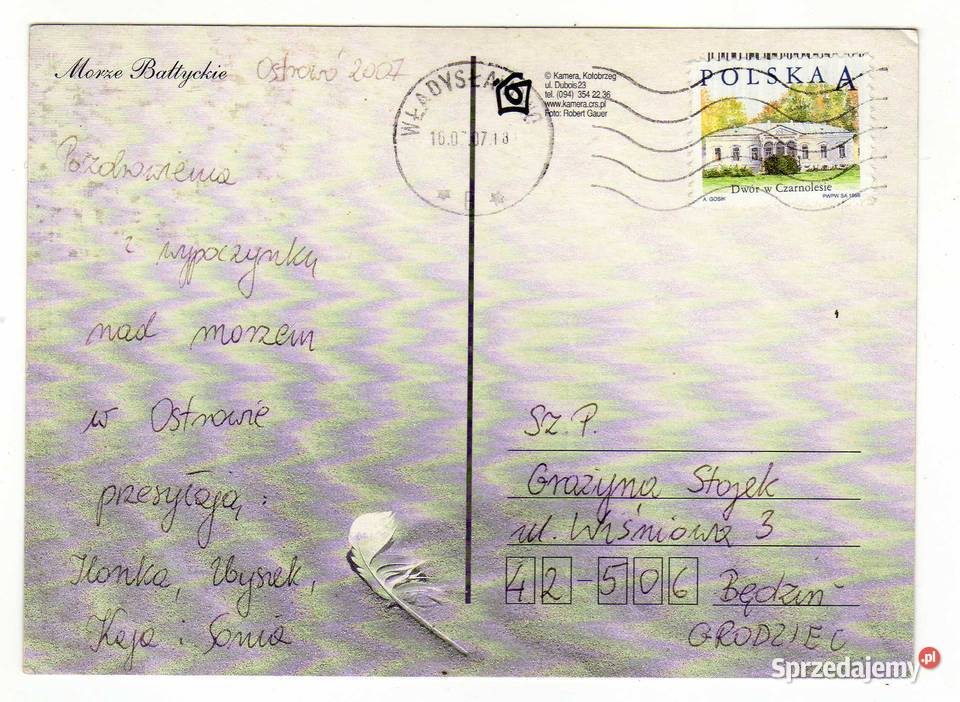 Morze Bałtyckie
Ostrowo 2007
Pozdrowienia
z wypoczynku
nad morzem
w Ostrowie
przesyłają:
Ilonka, Zbyszek,
Kaja i Sonia
WŁADYSŁAWOWO
© Kamera, Kołobrzeg
ul. Dubois23
tel. (094) 354 22 36
www.kamera.crs.pl
Foto: Robert Gauer
POLSKA A
Dwór w Czarnolesie
A. GOSIK PWPW SA 1998
Sz. P.
Grażyna Stojek
ul. Wiśniowa 3
42-506 Będzin-
GRODZIEC
Sprzedajemy.pl